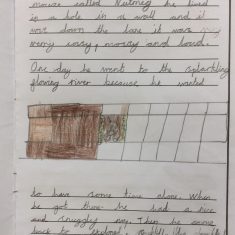 mouse called Nutmeg he lived
in a hole in a wall and it
was down the lane it was
very cosy, messy and loud.
One day he went to the sparkling
flowing river because he wanted
to have some time alone. When
he got there he had a nice
and snuggly nap. Then he came
back to